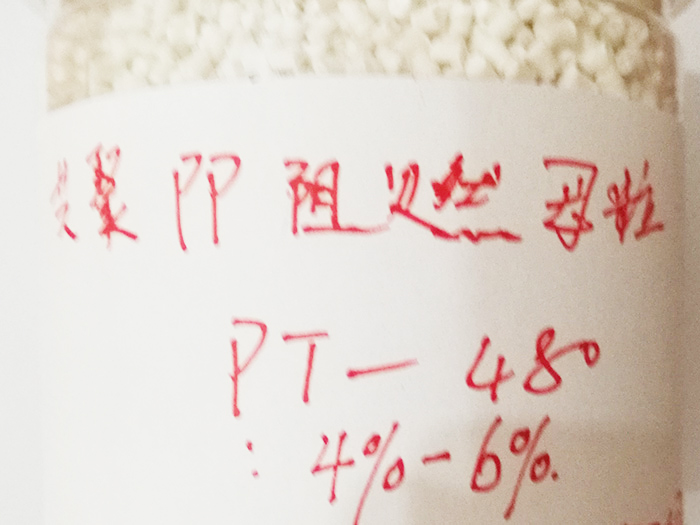 PP 阻燃母粒
PT－480
：4%-6%.